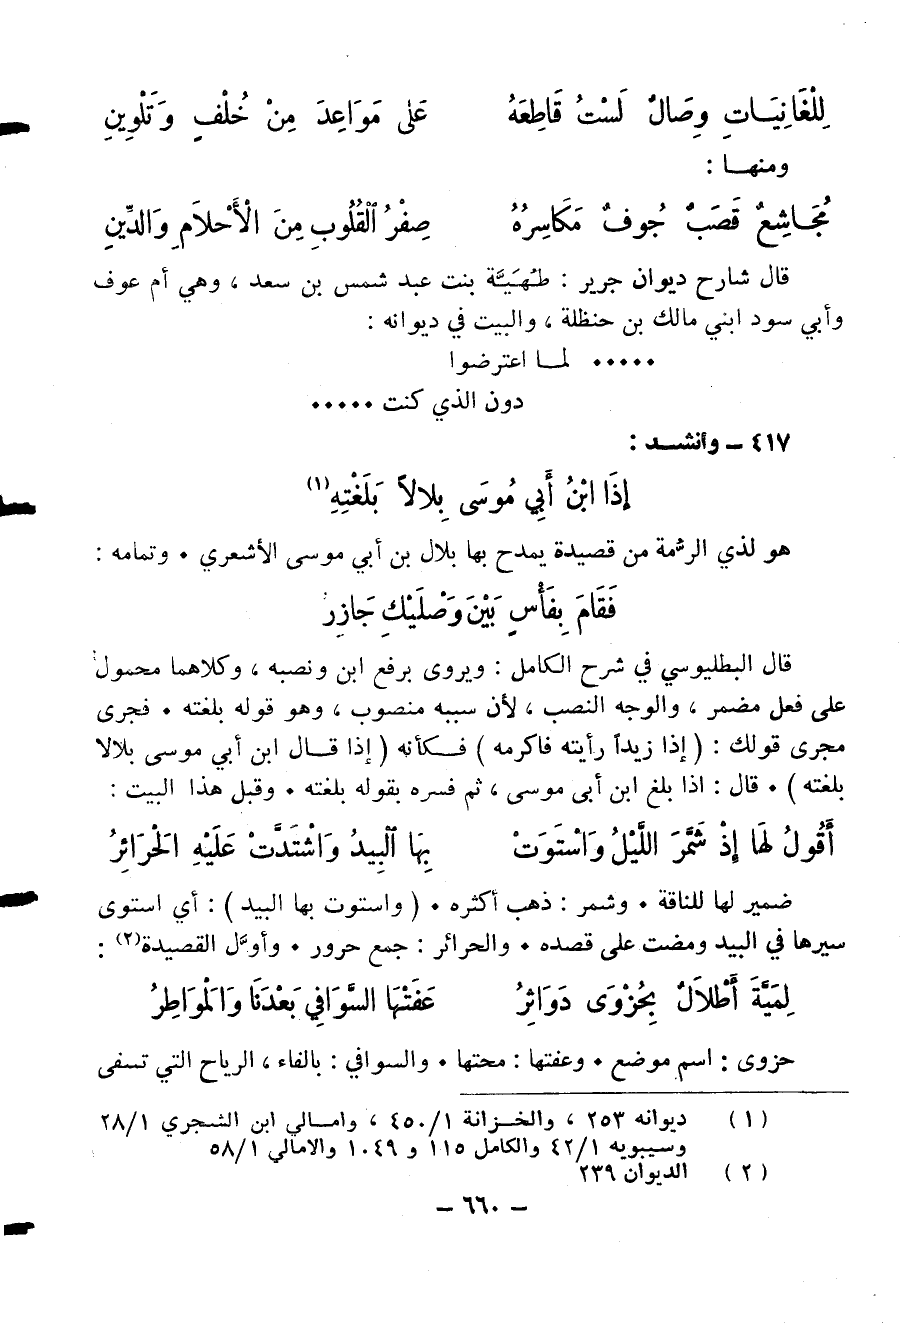 لِلْغَانِيَـاتِ وِصَالٌ لَسْتُ قَاطِعَهُ عَلى مَوَاعِدَ مِنْ خُلْفٍ وَتَلْوِينِ
ومنهـا :
مُجَاشِعٌ قَصَبٌ جُوفٌ مَكَاسِرُهُ صِفْرُ ٱلْقُلُوبِ مِنَ الْأَحْلَامِ وَالدِّينِ
قال شارح ديوان جرير : طُهَيَّة بنت عبد شمس بن سعد ، وهي أم عوف
وأبي سود ابني مالك بن حنظلة ، والبيت في ديوانه :
..... لمـا اعترضوا
دون الذي كنت .....
٤١٧ ـ وأنشـد :
إِذَا ابْنُ أَبِي مُوسَى بِلالاً بَلَغْتِهِ(١)
هو لذي الرمّة من قصيدة يمدح بها بلال بن أبي موسى الأشعري . وتمامه :
فَقَامَ بِفَأْسٍ بَيْنَ وَصْلَيْكِ جَازِرُ
قال البطليوسي في شرح الكامل : ويروى برفع ابن ونصبه ، وكلاهما محمول
على فعل مضمر ، والوجه النصب ، لأن سببه منصوب ، وهو قوله بلغته . فجرى
مجرى قولك : ( إذا زيداً رأيته فاكرمه ) فـكأنه ( إذا قـال ابن أبي موسى بلالا
بلغته ) . قال : اذا بلغ ابن أبى موسى ، ثم فسره بقوله بلغته . وقبل هذا البيت :
أَقُولُ لَهَا إِذْ شَمَّرَ اللَّيْلُ وَاسْتَوَتْ بِهَا ٱلْبِيدُ وَاشْتَدَّتْ عَلَيْهِ الحَرَائِرُ
ضمير لها للناقة . وشمر : ذهب أكثره . ( واستوت بها البيد ) : أي استوى
سيرها في البيد ومضت على قصده . والحرائر : جمع حرور . وأوّل القصيدة(٢) :
لِمَيَّةَ أَطْلَالٌ بِحُزْوَى دَوَاثِرُ عَفَتْهَا السَّوَافِي بَعْدَنَا وَالْمَوَاطِرُ
حزوى : اسم موضع . وعفتها : محتها . والسوافي : بالفاء ، الرياح التي تسفى
(١) ديوانه ٢٥٣ ، والخـزانة ٤٥٠/١ ، وامـالي ابن الشـجري ٢٨/١
وسيبويه ٤٢/١ والكامل ١١٥ و ١٠٤٩ والامالي ٥٨/١
(٢) الديوان ٢٣٩
ـ ٦٦٠ ـ